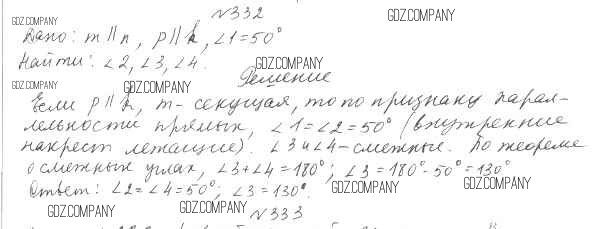 N332
GDZ.COMPANY
GDZ.COMPANY
Дано: m || n, p || k, ∠1=50°
Найти: ∠2, ∠3, ∠4.
GDZ.COMPANY
Решение
GDZ.COMPANY
GDZ.COMPANY
Если p || k, m- секущая, то по признаку парал-
лельности прямых, ∠1=∠2=50° (внутренние
накрест лежащие). ∠3 и ∠4-смежные. По теореме
о смежных углах, ∠3+∠4=180°; ∠3=180°-50°=130°
Ответ: ∠2=∠4=50°; ∠3=130°.
GDZ.COMPANY
GDZ.COMPANY
GDZ.COMPANY
GDZ.COMPANY
N333